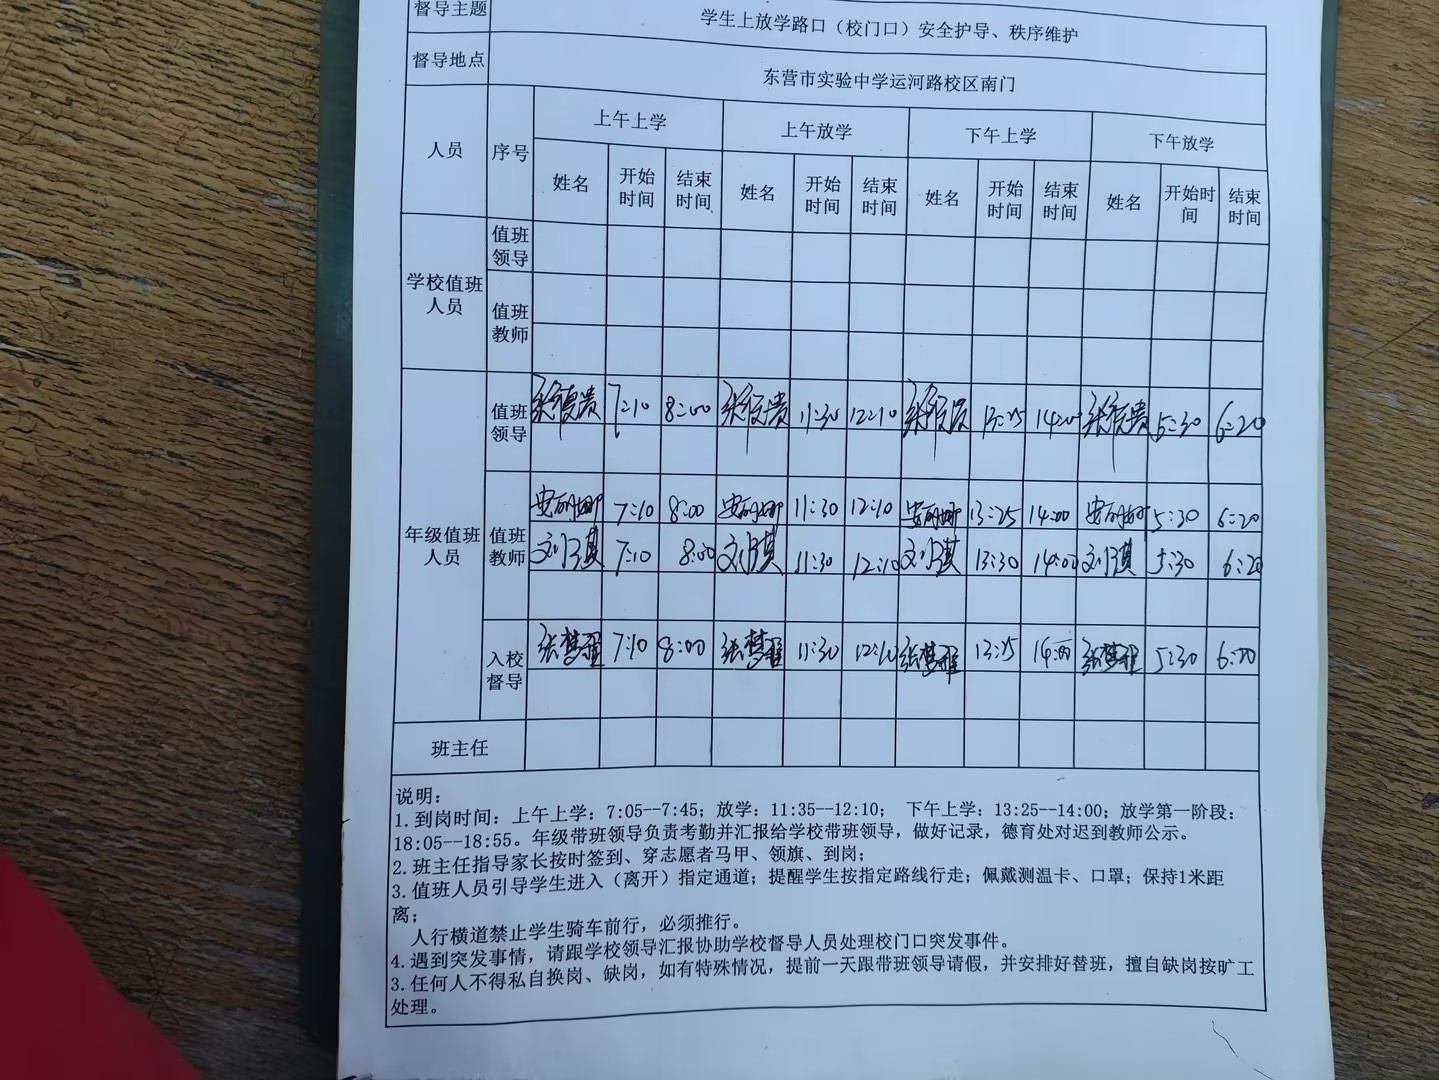 督导主题 学生上放学路口（校门口）安全护导、秩序维护
督导地点 东营市实验中学运河路校区南门
人员 序号 上午上学 上午放学 下午上学 下午放学
姓名 开始时间 结束时间 姓名 开始时间 结束时间 姓名 开始时间 结束时间 姓名 开始时间 结束时间
学校值班人员 值班领导
值班教师
年级值班人员 值班领导 张德贵 7:10 8:00 张德贵 11:30 12:10 张德贵 13:25 14:00 张德贵 5:30 6:20
值班教师 7:10 8:00 11:30 12:10 13:25 14:00 5:30 6:20
7:10 8:00 11:30 12:10 13:30 14:00 5:30 6:20
入校督导 张梦雅 7:10 8:00 张梦雅 11:30 12:10 张梦雅 13:25 14:00 张梦雅 5:30 6:20
班主任
说明：
1.到岗时间：上午上学：7:05--7:45；放学：11:35--12:10； 下午上学：13:25--14:00；放学第一阶段：
18:05--18:55。年级带班领导负责考勤并汇报给学校带班领导，做好记录，德育处对迟到教师公示。
2.班主任指导家长按时签到、穿志愿者马甲、领旗、到岗；
3.值班人员引导学生进入（离开）指定通道；提醒学生按指定路线行走；佩戴测温卡、口罩；保持1米距
离；
人行横道禁止学生骑车前行，必须推行。
4.遇到突发事情，请跟学校领导汇报协助学校督导人员处理校门口突发事件。
3.任何人不得私自换岗、缺岗，如有特殊情况，提前一天跟带班领导请假，并安排好替班，擅自缺岗按旷工
处理。